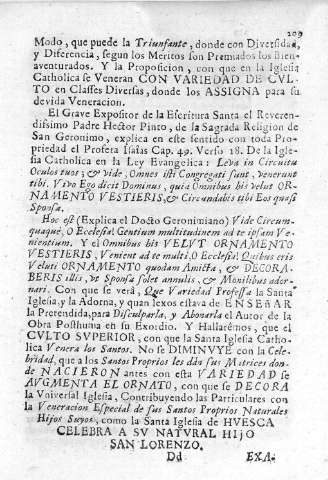 209
Modo, que puede la Triunfante, donde con Diversidad,
y Diferencia, segun los Meritos son Premiados los Bien-
aventurados. Y la Proposicion, con que en la Iglesia
Catholica se Veneran CON VARIEDAD DE CVL-
TO en Classes Diversas, donde los ASSIGNA para su
devida Veneracion.
El Grave Expositor de la Escritura Santa el Reveren-
dissimo Padre Hector Pinto, de la Sagrada Religion de
San Geronimo, explica en este sentido con toda Pro-
priedad el Profeta Isaìas Cap. 49. Verso 18. De la Igle-
sia Catholica en la Ley Evangelica: Leva in Circuitu
Oculos tuos; & vide, Omnes isti Congregati sunt, venerunt
tibi. Vivo Ego dicit Dominus, quia Omnibus his velut OR-
NAMENTO VESTIERIS, & Circundabis tibi Eos quasi
Sponsa.
Hoc est (Explica el Docto Geronimiano) Vide Circum-
quaquè, O Ecclesia! Gentium multitudinem ad te ipsam Ve-
nientium. Y el Omnibus his VELUT ORNAMENTO
VESTIERIS, Venient ad te multi, O Ecclesia! Quibus eris
Veluti ORNAMENTO quodam Amicta, & DECORA-
BERIS illis, ut Sponsa solet annulis, & Monilibus ador-
nari. Con que se verà, Que Variedad Professa la Santa
Iglesia, y la Adorna, y quan lexos estava de ENSEñAR
la Pretendida, para Disculparla, y Abonarla el Autor de la
Obra Posthuma en su Exordio. Y Hallarèmos, que el
CVLTO SVPERIOR, con que la Santa Iglesia Catho-
lica Venera los Santos. No se DIMINVYE con la Cele-
bridad, que a los Santos Proprios les diò sus Matrices don-
de NACIERON antes con esta VARIEDAD se
AVGMENTA EL ORNATO, con que se DECORA
la Vniversal Iglesia, Contribuyendo las Particulares con
la Veneracion Especial de sus Santos Proprios Naturales
Hijos Suyos, como la Santa Iglesia de HVESCA
CELEBRA A SV NATVRAL HIJO
SAN LORENZO.
Dd EXA-